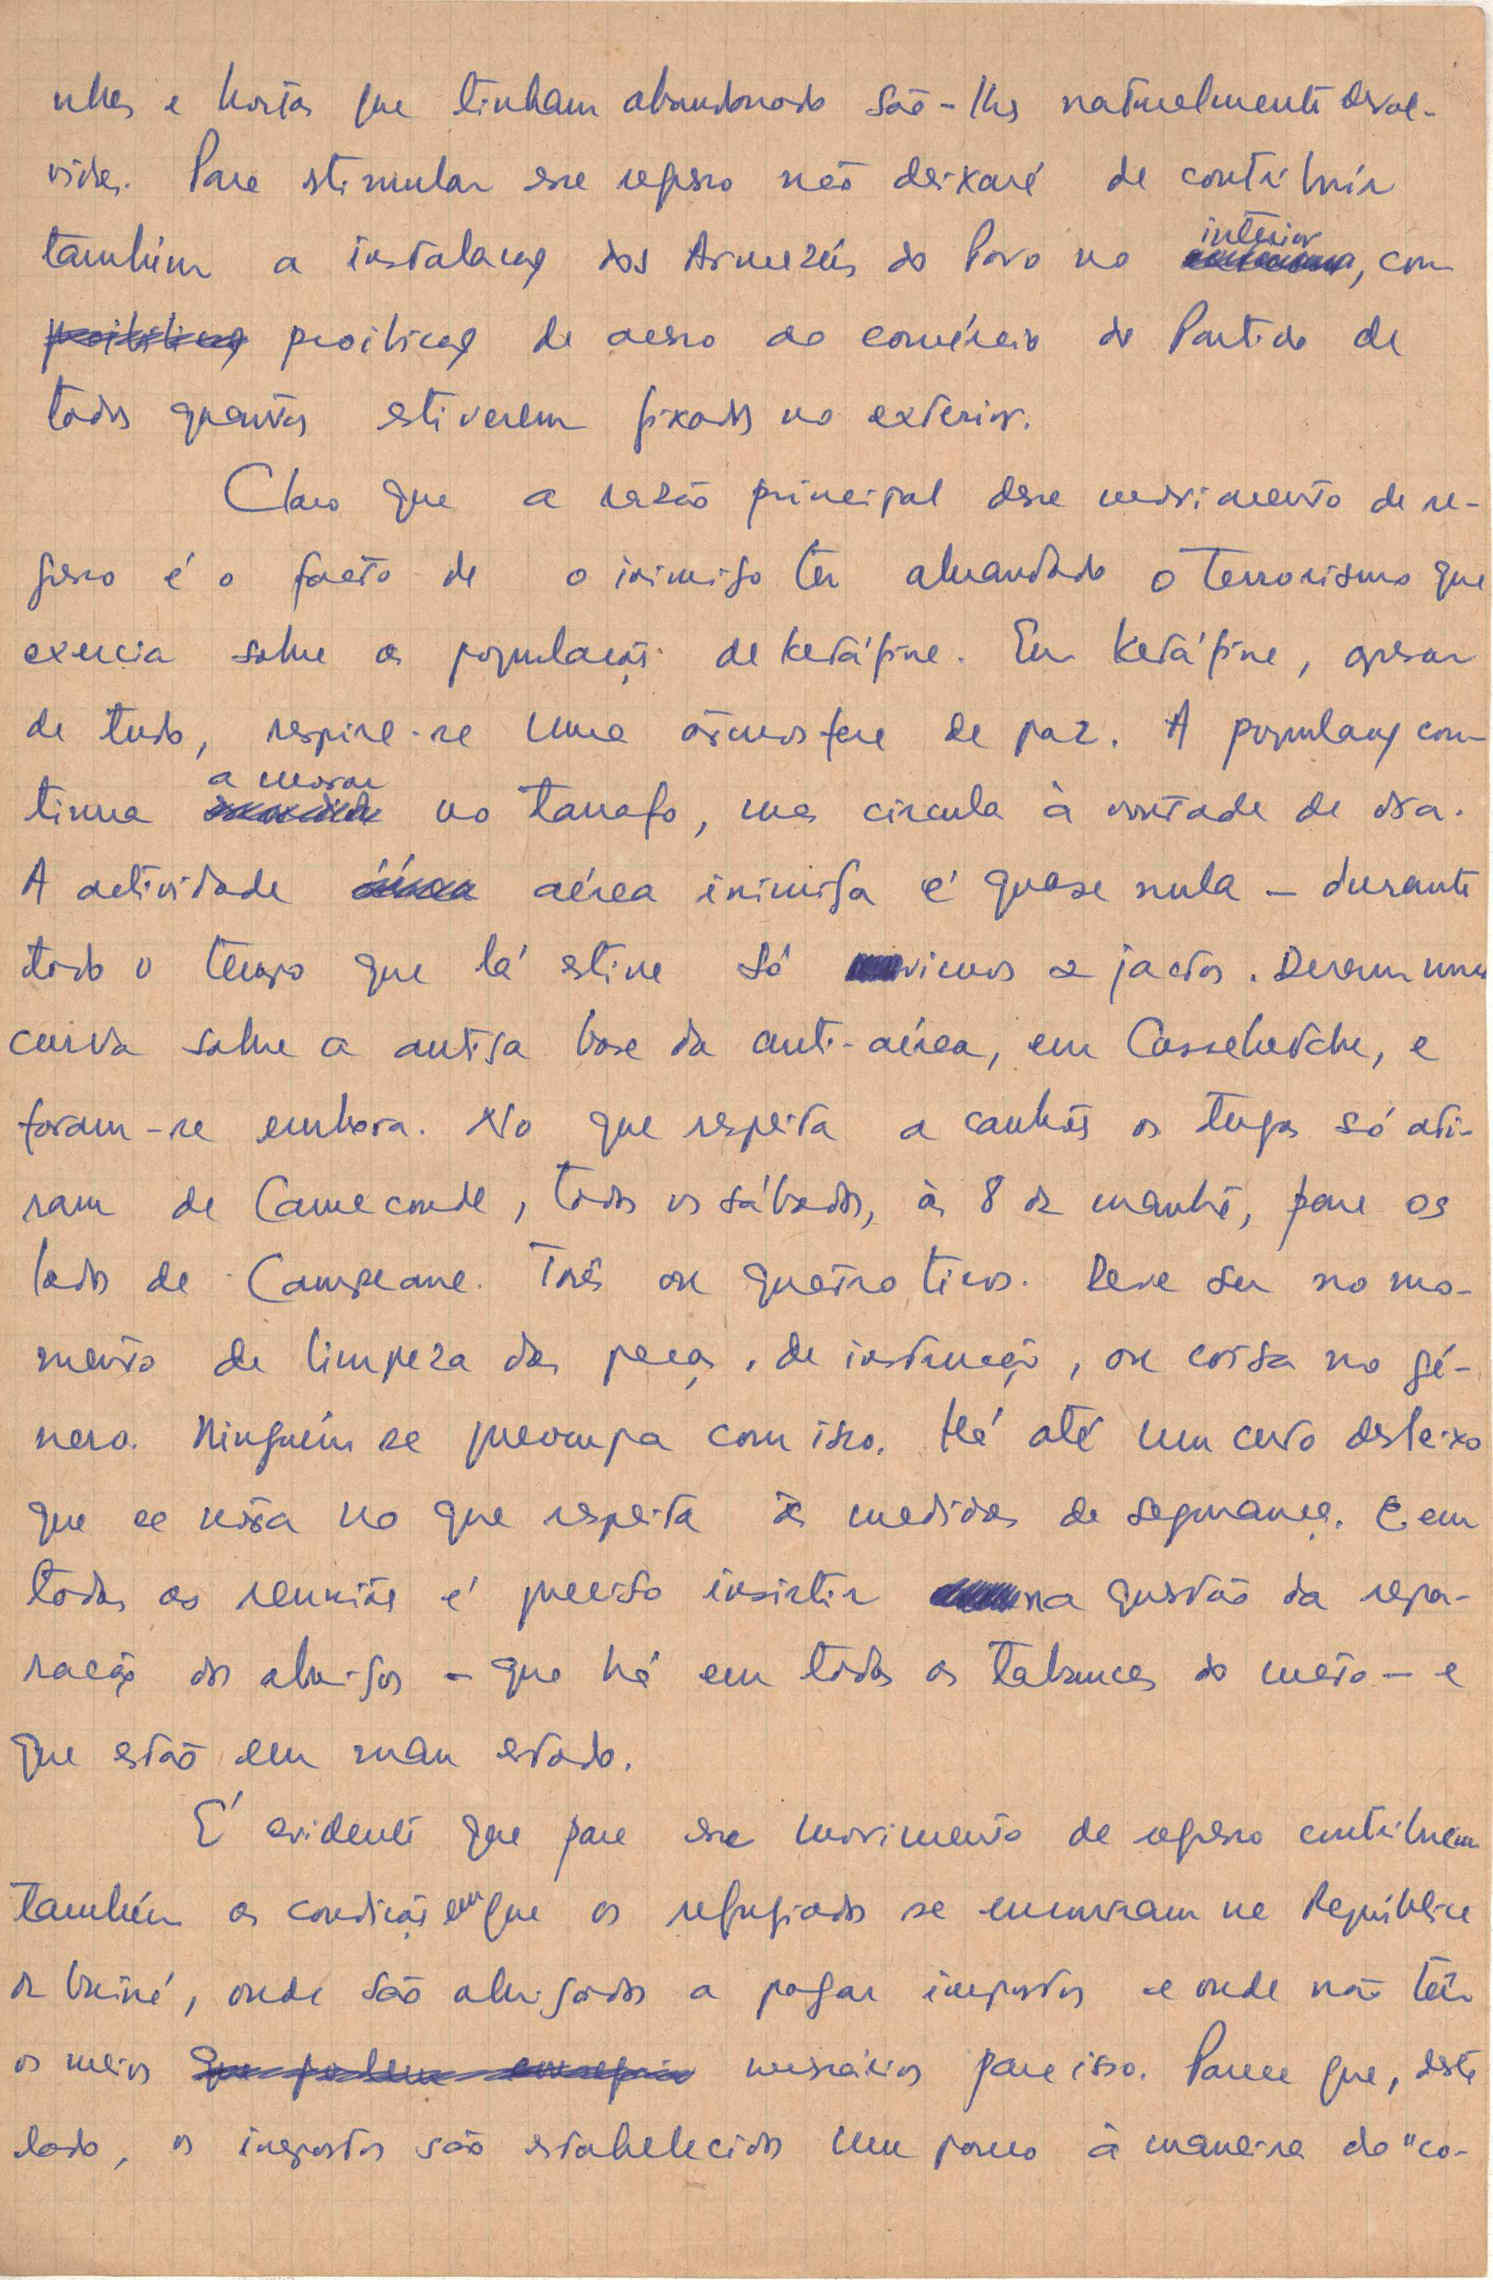 nhas e hortas que tinham abandonado são-lhes naturalmente devol-
vidas. Para stimular esse regresso não deixará de contribuir
também a instalação dos Armazéns do Povo no interior, com
proibição proibição de acesso ao comércio do Partido de
todos quantos estiverem fixados no exterior.
Claro que a razão principal desse movimento de re-
gresso é o facto de o inimigo ter abrandado o terrorismo que
exercia sobre as populações de Ketáfine. Em Ketáfine, apesar
de tudo, respira-se uma atmosfera de paz. A população con-
tinua a morar no tarrafo, mas circula à vontade de dia.
A actividade aérea inimiga é quase nula – durante
todo o tempo que lá estive só vimos 2 jactos. Deram uma
curva sobre a antiga base da anti-aérea, em Cassebetche, e
foram-se embora. No que respeita a canhões os tugas só ati-
ram de Cameconde, todos os sábados, às 8 da manhã, para os
lados de Campeane. Três ou quatro tiros. Deve ser no mo-
mento de limpeza das peças, de instrução, ou coisa no gé-
nero. Ninguém se preocupa com isso. Há até um certo desleixo
que se nota no que respeita às medidas de segurança. E em
todas as reuniões é preciso insistir na questão da repa-
ração dos abrigos – que há em todas as tabancas do mato – e
que estão em mau estado.
É evidente que para esse movimento de regresso contribuem
também as condições em que os refugiados se encontram na República
da Guiné, onde são obrigados a pagar impostos e onde não têm
os meios que podem conseguir necessários para isso. Parece que, deste
lado, os impostos são estabelecidos um pouco à maneira do "co-